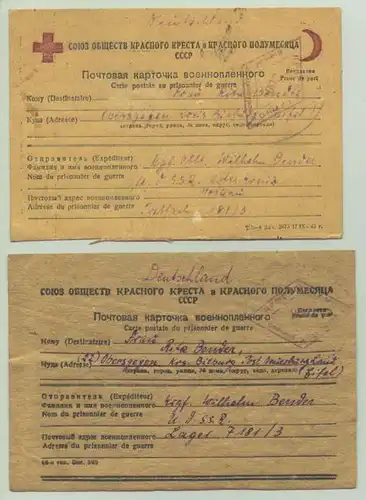 Deutschland
СОЮЗ ОБЩЕСТВ КРАСНОГО КРЕСТА и КРАСНОГО ПОЛУМЕСЯЦА
СССР
Почтовая карточка военнопленного
Carte postale du prisonnier de guerre
Бесплатно
Franc de port
Кому (Destinataire) Frau Rita Bender
Куда (Adresse) Oberzegen
(страна, город, улица, № дома, округ, село, деревня)
Отправитель (Expéditeur)
Фамилия и имя военнопленного
Nom du prisonnier de guerre
Wilhelm Bender
U.d.S.S.R.
Почтовый адрес военнопленного
Adresse du prisonnier de guerre
7181/3
Deutschland
СОЮЗ ОБЩЕСТВ КРАСНОГО КРЕСТА и КРАСНОГО ПОЛУМЕСЯЦА
СССР
Почтовая карточка военнопленного
Carte postale du prisonnier de guerre
Бесплатно
Franc de port
Кому (Destinataire) Frau Rita Bender,
Куда (Adresse) (22) Oberzegen Krs. Bitburg
(Eifel)
(страна, город, улица, № дома, округ, село, деревня)
Отправитель (Expéditeur)
Фамилия и имя военнопленного
Nom du prisonnier de guerre
Wilhelm Bender
U.d.S.S.R.
Почтовый адрес военнопленного
Adresse du prisonnier de guerre
Lager 7181/3